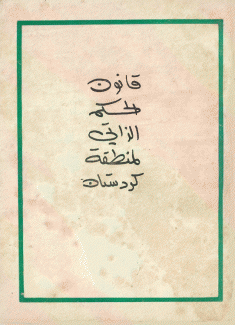 قانون
الحكم
الذاتي
لمنطقة
كردستان